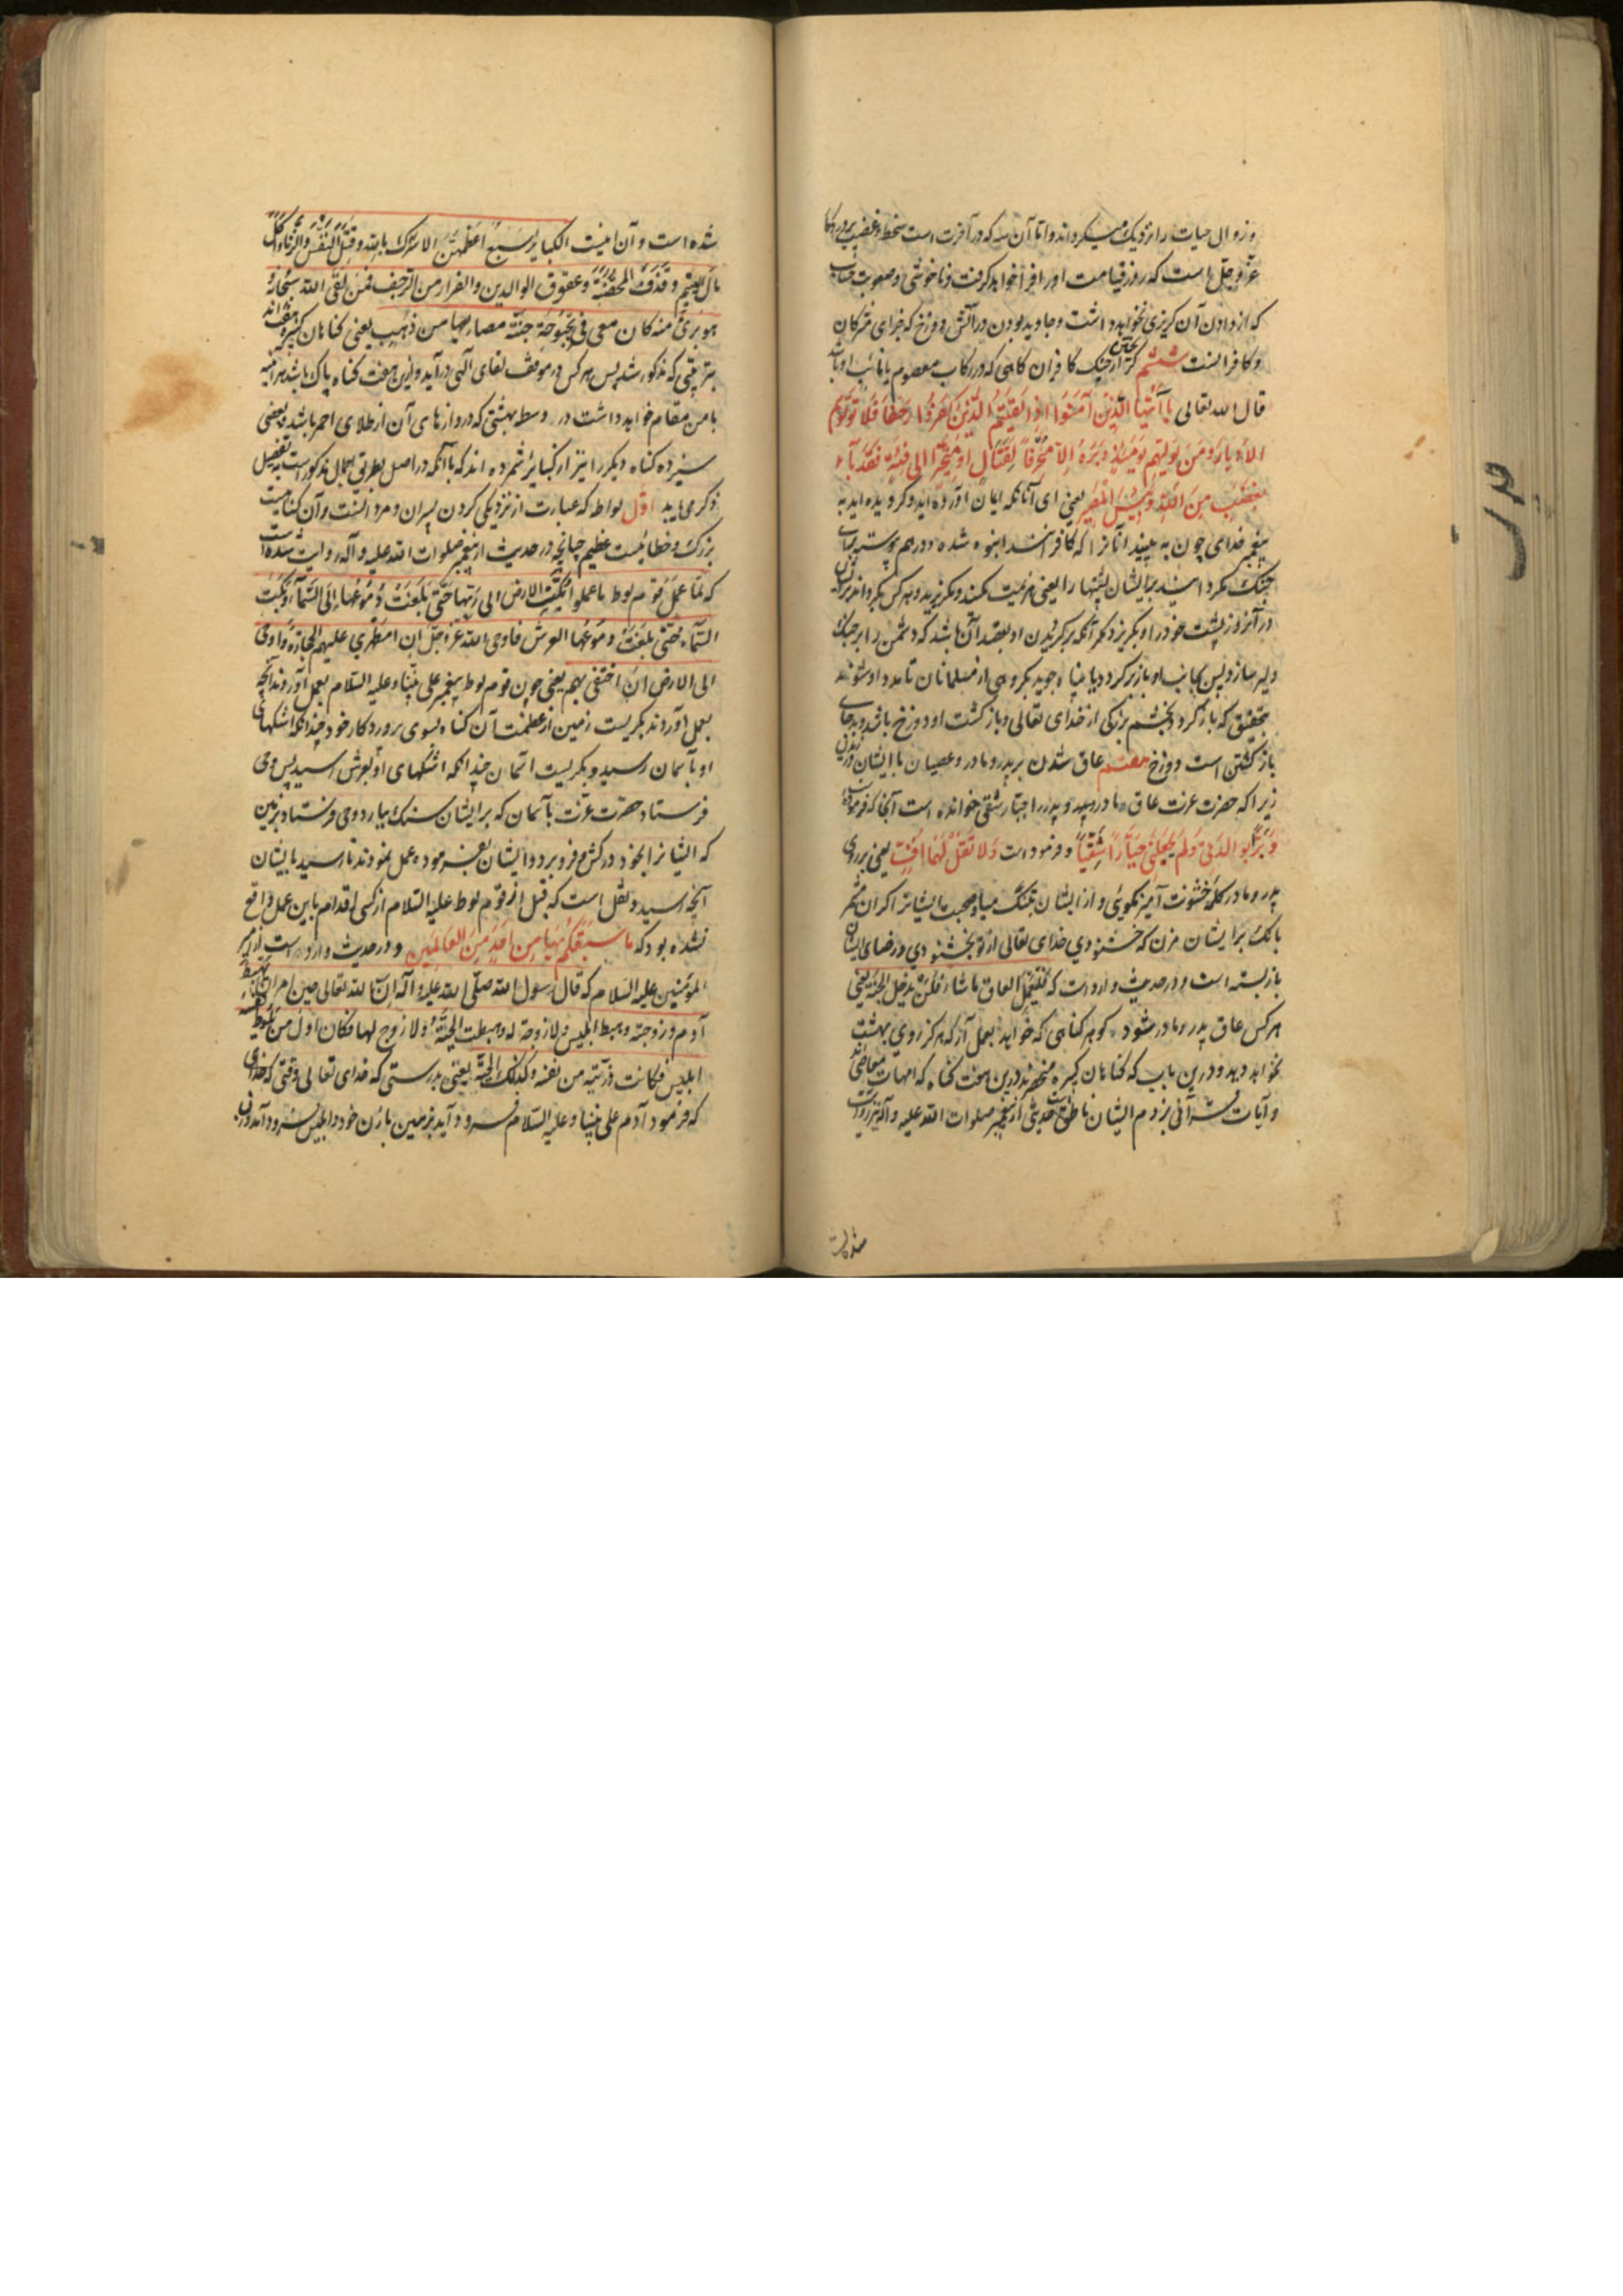 و زوال حیات را نزدیک میگرداند و اما آن سه که در آخرت است سخط و غضب پروردکار
عز و جل است که روز قیامت او را فرا خواهد کرفت و ناخوشی و صعوبت حساب
که از دادن آن کریزی نخواهد داشت و جاوید بودن در آتش دوزخ که جزای مشرکان
و کافرانست ششم کریختن از جنک کافران کاهی که در رکاب معصوم یا نائب او باشد
قال الله تعالی یا ایها الذین آمنوا اذا لقیتم الذین کفروا زحفا فلا تولوهم
الادبار و من یولهم یومئذ دبره الا متحرفا لقتال او متحیزا الی فئة فقد باء
بغضب من الله و بئس المصیر یعنی ای آنانکه ایمان آورده اید و کرویده اید به
پیغمبر خدای چون به بینید آنانرا که کافر شدند انبوه شده و در هم پیوسته برای
جنک مکردانید بر ایشان پشتها را یعنی هزیمت مکنید و مکریزید و هر کس بکرداند بر ایشان
در آنروز پشت خود را و بکریزد مکر آنکه برکردیدن او بقصد آن باشد که دشمن را بر جنک
دلیر سازد پس بجانب او باز کردد یا پناه جوید بکروهی از مسلمانان تا مدد او شوند
بتحقیق که باز کردد بخشم بزرکی از خدای تعالی و بازکشت او دوزخ باشد و بد جای
بازکشتن است دوزخ هفتم عاق شدن بر پدر و مادر و عصیان با ایشان ورزیدن
زیرا که حضرت عزت عاق مادر و پدر را جبار شقی خوانده است آنجا که فرموده
و برا بوالدتی و لم یجعلنی جبارا شقیا و فرموده است و لا تقل لهما اف یعنی بر روی
پدر و مادر کلمه خشونت آمیز مکوئی و از ایشان بتنک میا و صحبت ایشانرا کران مشمر
بانک بر ایشان مزن که خشنودی خدای تعالی از تو بخشنودی و رضای ایشان
باز بسته است و در حدیث وارد است که فلیعمل العاق ما شاء فلن یدخل الجنة یعنی
هر کس عاق پدر و مادر شود کو هر کناهی که خواهد بعمل آر که هرکز روی بهشت
نخواهد دید و درین باب که کناهان کبیره منحصرند درین هفت کناه که امهات معاصی اند
و آیات قرآنی بر ذم ایشان ناطق است حدیثی از پیغمبر صلوات الله علیه و آله نیز روایت
شده است و آن اینست الکبایر سبع اعظمهن الاشراک بالله و قتل النفس و الزنا و اکل
مال الیتیم و قذف المحصنة و عقوق الوالدین و الفرار من الزحف فمن لقی الله سبحانه
هو بریء منه کان معی فی بحبوحة جنة مصاریعها من ذهب یعنی کناهان کبیره هفت اند
بترتیبی که مذکور شد پس هر کس در موقف لقای آلهی درآید و ازین هفت کناه پاک باشد هر آینه
با من مقام خواهد داشت در وسط بهشتی که دروازهای آن از طلای احمر باشد و بعضی
سیزده کناه دیکر را نیز از کبایر شمرده اند که با آنکه در اصل بطریق اجمال مذکور است به تفصیل
ذکر می یابد اول لواط که عبارت از نزدیکی کردن پسران و مردانست و آن کناهیست
بزرک و خطائیست عظیم چنانچه در حدیث از پیغمبر صلوات الله علیه و آله روایت شده است
که لما عمل قوم لوط ما عملوا بکت الارض الی ربها حتی بلغت دموعها الی السماء و بکت
السماء حتی بلغت دموعها العرش فاوحی الله عز و جل ان امطری علیهم الحجارة و اوحی
الی الارض ان اخسفی بهم یعنی چون قوم لوط پیغمبر علی نبینا و علیه السلام بعمل آوردند آنچه
بعمل آوردند بکریست زمین از عظمت آن کناه بسوی پروردکار خود چندانکه اشکهای
او بآسمان رسید و بکریست آسمان چندانکه اشکهای او بعرش رسید پس وحی
فرستاد حضرت عزت بآسمان که بر ایشان سنک بیار و وحی فرستاد بزمین
که ایشانرا بخود درکش و فرو بر و ایشان بفرموده عمل نمودند تا رسید بایشان
آنچه رسید و نقل است که قبل از قوم لوط علیه السلام از کسی اقدام باین عمل واقع
نشده بود که ما سبقکم بها من احد من العالمین و در حدیث وارد است از امیر
المؤمنین علیه السلام که قال رسول الله صلی الله علیه و آله ان الله تعالی حین امر ان یهبط
آدم و زوجته و هبط ابلیس و لا زوجة له و هبطت الحیة و لا زوج لها فکان اول من یلوط بنفسه
ابلیس فکانت ذریته من نفسه و کذلک الحیة یعنی بدرستی که خدای تعالی وقتی که
که فرمود آدم علی نبینا و علیه السلام فرود آید بزمین با زن خود و ابلیس فرود آمد و زن
شده است